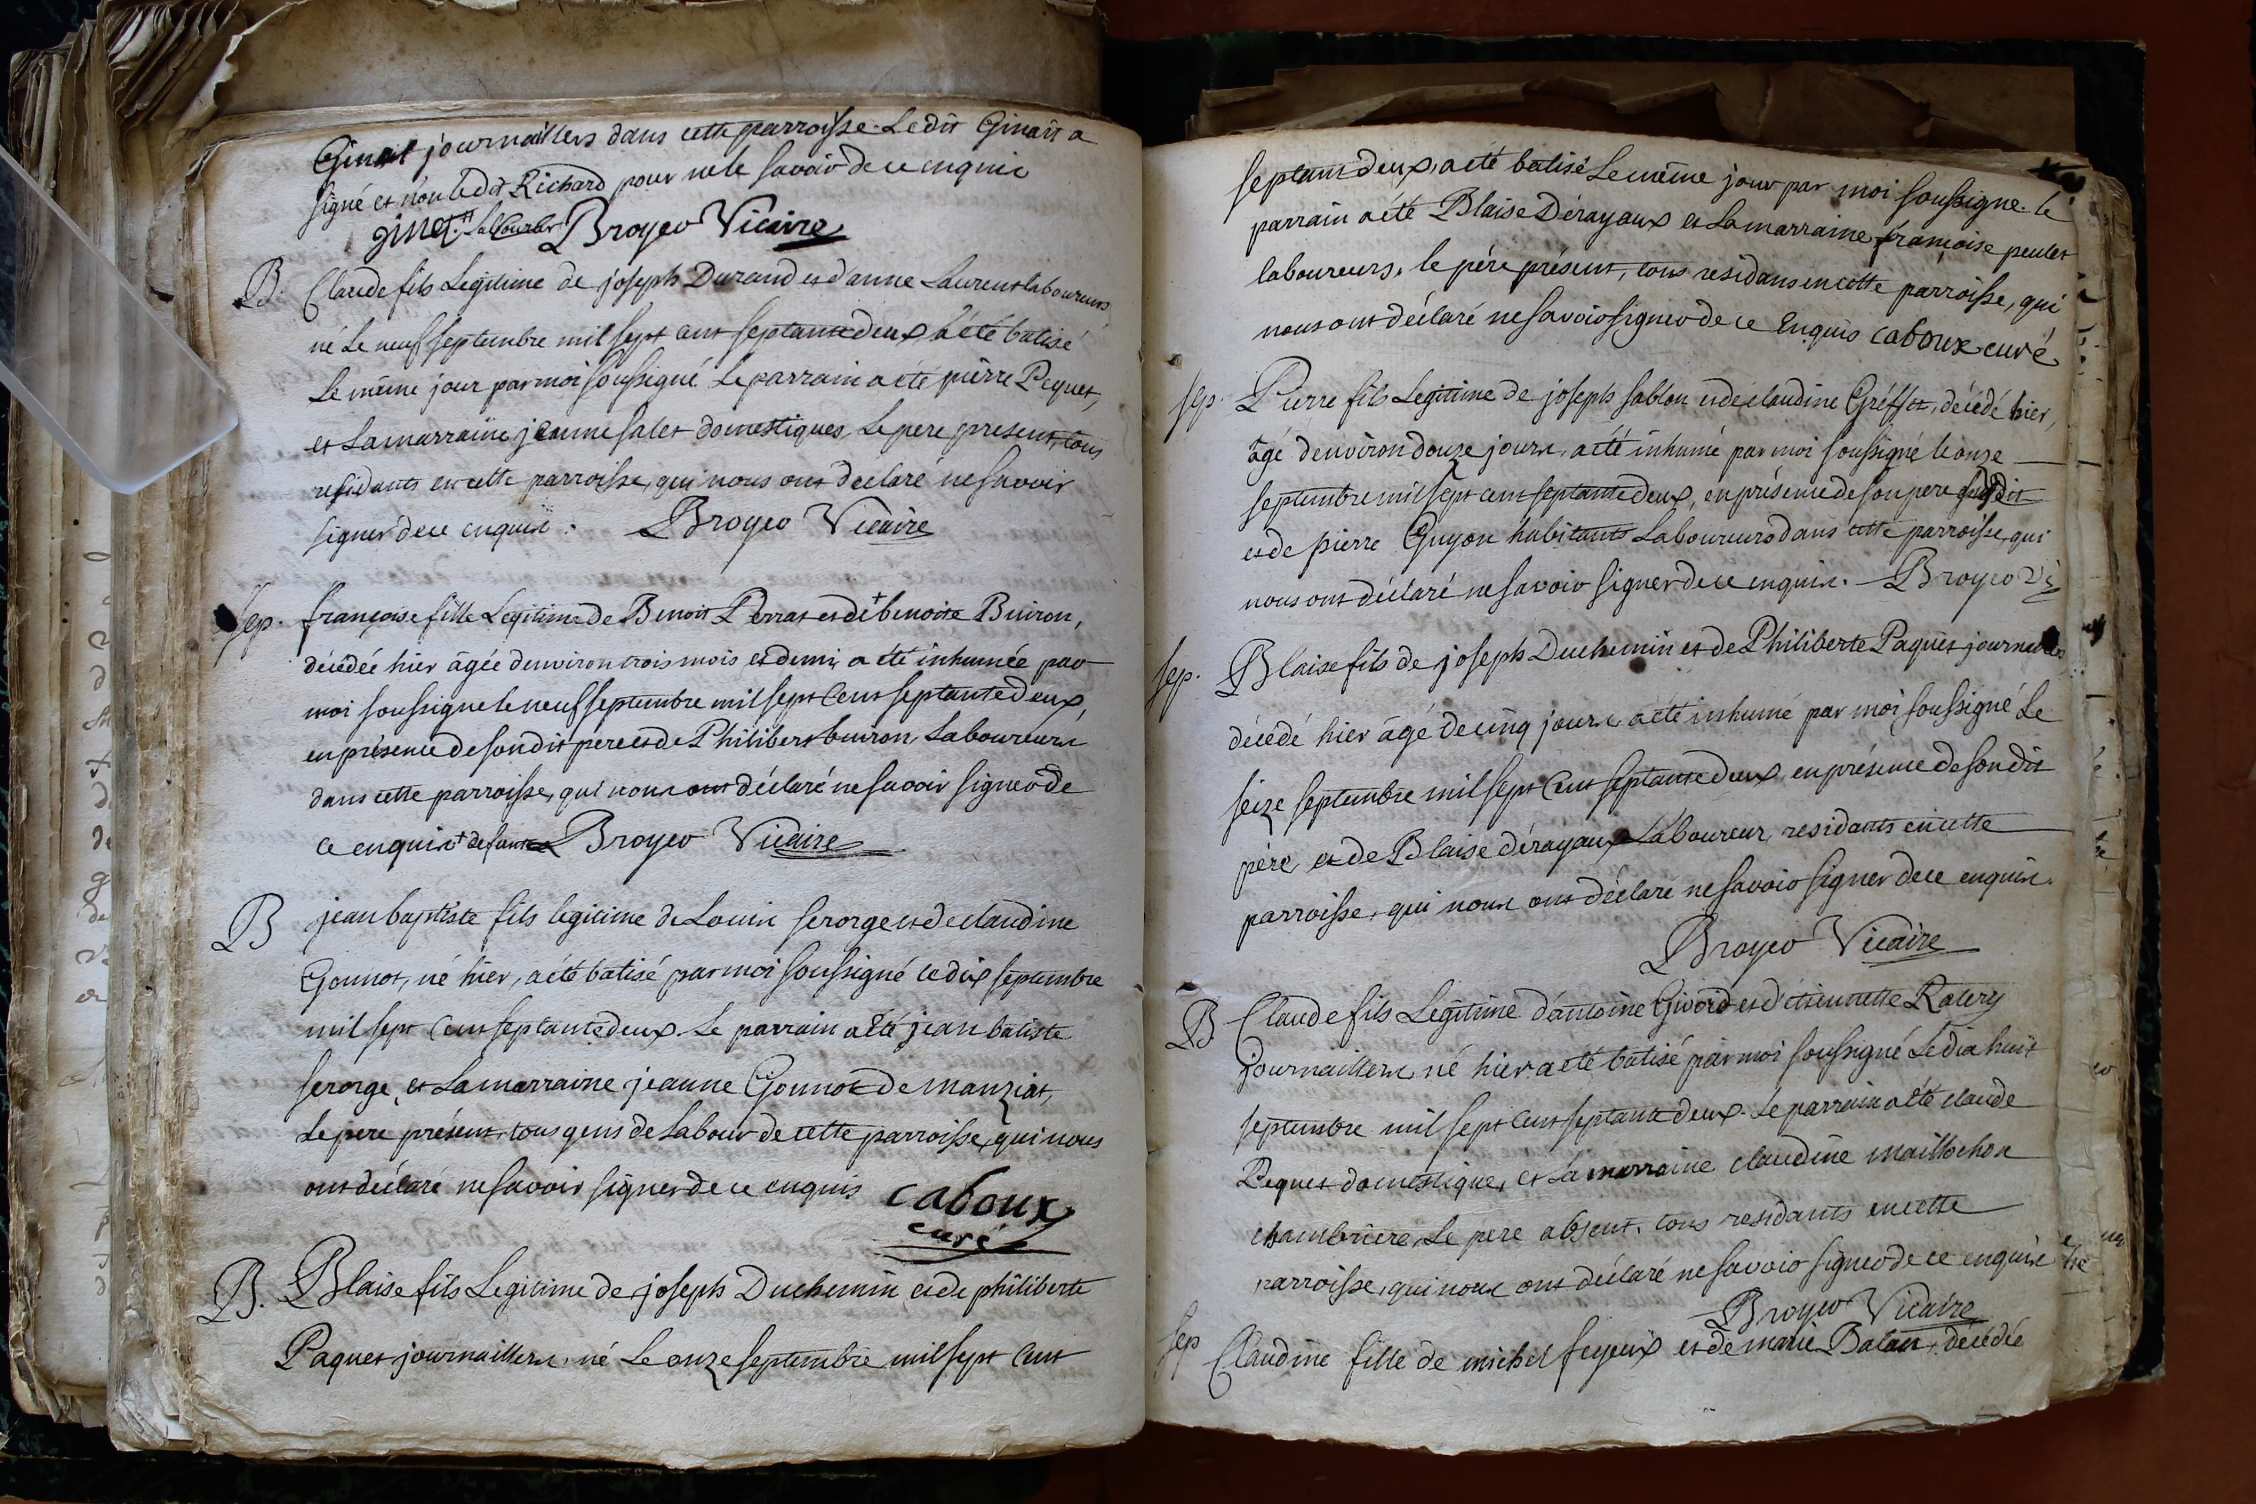 Ginait journaillers dans cette parroisse. Le dit Ginait a
signé et non ledit Richard pour ne le savoir de ce enquis
ginet Broyer Vicaire
B. Claude fils Legitime de joseph Durand et d'anne Laurent laboureurs
né Le neuf septembre mil sept cent septante deux a été batisé
Le même jour par moi soussigné Le parrain a eté pierre Pequet,
et La marraine jeanne salet domestiques, Le pere present, tous
residants en cette parroisse, qui nous ont declaré ne savoir
signer de ce enquis. Broyer Vicaire
Sep. françoise fille Legitime de Benoit Perrat et de + benoite Buiron,
décédée hier âgée d'environ trois mois et demi, a été inhumée par
moi soussigné le neuf septembre mil sept Cent septante deux,
en présence de son dit pere et de Philibert buiron, Laboureurs
dans cette parroisse, qui nous ont déclaré ne savoir signer de
ce enquis + defunte Broyer Vicaire
B jean baptiste fils legitime de Louis serorge et de claudine
Gonnot, né hier, a été batisé par moi soussigné ce dix septembre
mil sept Cent septante deux. Le parrain a été jean batiste
serorge, et La marraine jeanne Gonnot de manziat,
Le pere présent, tous gens de Labour de cette parroisse, qui nous
ont déclaré ne savoir signer de ce enquis Caboux
curé
B. Blaise fils Legitime de joseph Duchemin et de philiberte
Paquet journaillers, né Le onze septembre mil sept Cent
septante deux, a été batisé Le même jour par moi soussigné. le
parrain a été Blaise Dérayaux et La marraine françoise peulet
laboureurs, le pére présent, tous residans en cette parroisse, qui
nous ont déclaré ne savoir signer de ce Enquis Caboux curé
sep. Pierre fils Legitime de joseph sablon et de claudine Gréffet, décédé hier,
âgé d'environ douze jours, a été inhumé par moi soussigné le onze
septembre mil sept cent septante deux, en présence de son pere susdit
et de pierre Guyon habitants Laboureurs dans cette parroisse, qui
nous ont déclaré ne savoir signer de ce enquis. Broyer Vi
sep. Blaise fils de joseph Duchemin et de Philiberte Paquet journaillers
décédé hier âgé de cinq jours a été inhumé par moi soussigné Le
seize septembre mil sept Cent septante deux, en présence de son dit
pére et de Blaise dérayaux Laboureur, residants en cette
parroisse, qui nous ont déclaré ne savoir signer de ce enquis.
Broyer Vicaire
B Claude fils Legitime d'antoine Givord et d'etiennette Ratery
journaillers né hier a été batisé par moi soussigné Le dix huit
septembre mil sept Cent septante deux. Le parrain a été claude
Pequet domestique, et La marraine claudine maillochon
chambriere, Le pere absent, tous residants en cette
parroisse, qui nous ont déclaré ne savoir signer de ce enquis
Broyer Vicaire
sep Claudine fille de michel feyeux et de marie Balan, décédée